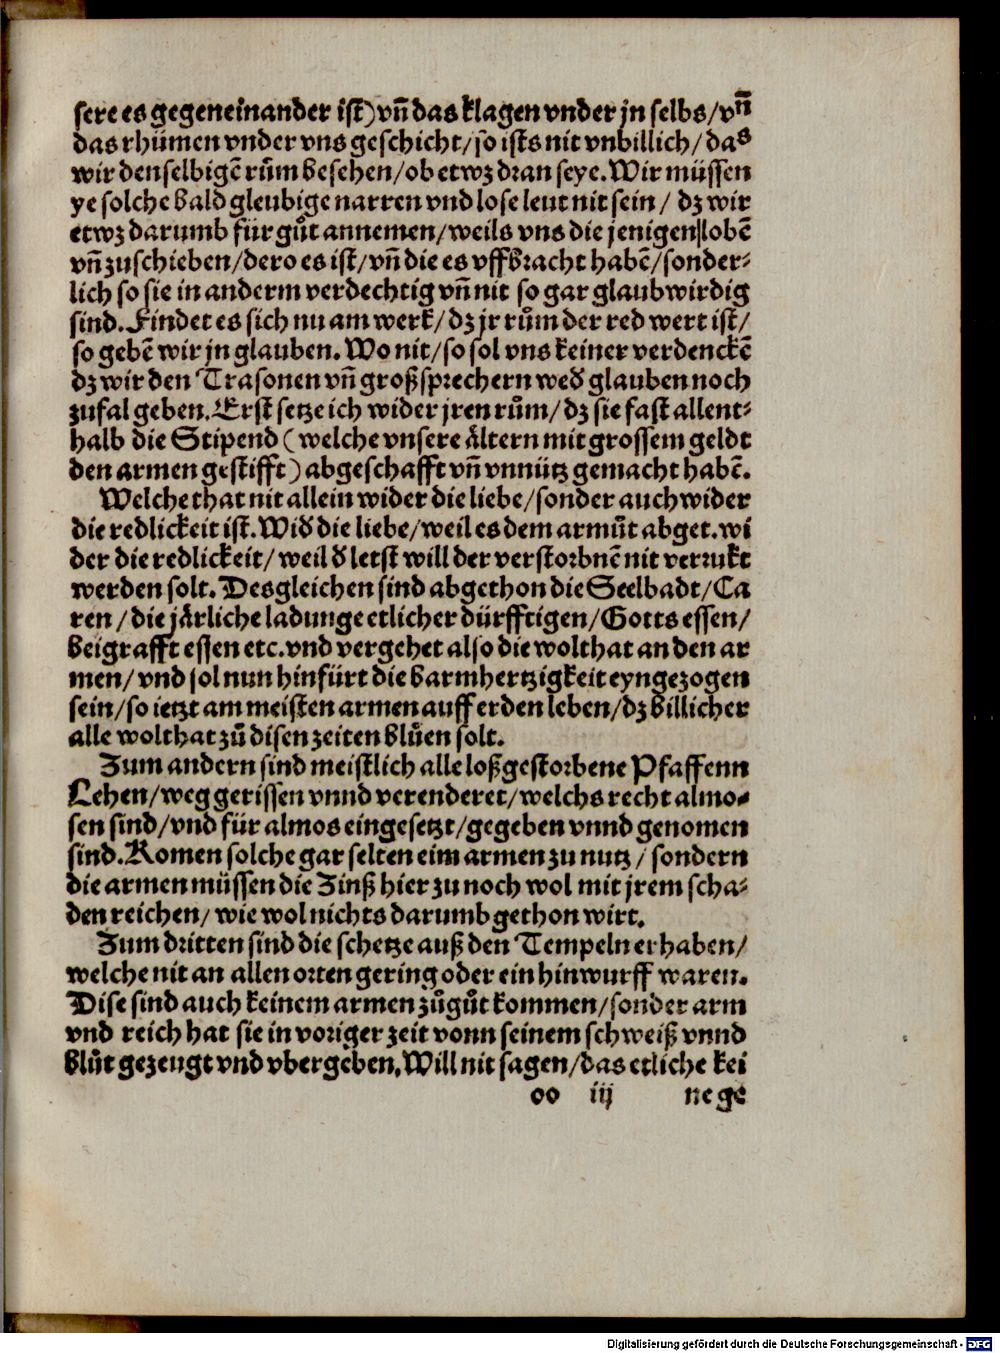 sere es gegeneinander ist) vn̄ das klagen vnder jn selbs/ vn̄
das rhümen vnder vns geschicht/ so ists nit vnbillich/ das
wir denselbigē rům besehen/ ob etwz dran seye. Wir müssen
ye solche bald gleubige narren vnd lose leut nit sein/ dz wir
etwz darumb für gůt annemen/ weils vns die jenigen lobē
vn̄ zuschieben/ dero es ist/ vn̄ die es vffbracht habē/ sonder⸗
lich so sie in anderm verdechtig vn̄ nit so gar glaubwirdig
sind. Findet es sich nu am werk/ dz jr rům der red wert ist/
so gebē wir jn glauben. Wo nit/ so sol vns keiner verdenckē
dz wir den Trasonen vn̄ großsprechern wed̕ glauben noch
zufal geben. Erst setze ich wider jren rům/ dz sie fast allent⸗
halb die Stipend (welche vnsere ältern mit grossem geldt
den armen gestifft) abgeschafft vn̄ vnnütz gemacht habē.
Welche that nit allein wider die liebe/ sonder auch wider
die redlickeit ist. Wid̕ die liebe/ weil es dem armůt abget. wi
der die redlickeit/ weil d̕ letst will der verstorbnē nit verrukt
werden solt. Desgleichen sind abgethon die Seelbadt/ Ca
ren/ die järliche ladunge etlicher dürfftigen/ Gotts essen/
beigrafft essen etc. vnd vergehet also die wolthat an den ar
men/ vnd sol nun hinfürt die barmhertzigkeit eyngezogen
sein/ so ietzt am meisten armen auff erden leben/ dz billicher
alle wolthat zů disen zeiten blůen solt.
Zum andern sind meistlich alle loßgestorbene Pfaffenn
Lehen/ weggerissen vnnd verenderet/ welchs recht almo⸗
sen sind/ vnd für almos eingesetzt/ gegeben vnnd genomen
sind. Komen solche gar selten eim armen zu nutz/ sondern
die armen müssen die Zinß hier zu noch wol mit jrem scha⸗
den reichen/ wie wol nichts darumb gethon wirt.
Zum dritten sind die schetze auß den Tempeln erhaben/
welche nit an allen orten gering oder ein hinwurff waren.
Dise sind auch keinem armen zůgůt kommen/ sonder arm
vnd reich hat sie in voriger zeit vonn seinem schweiß vnnd
blůt gezeugt vnd vbergeben. Will nit sagen/ das etliche kei
oo iij nege
Digitalisierung gefördert durch die Deutsche Forschungsgemeinschaft - DFG